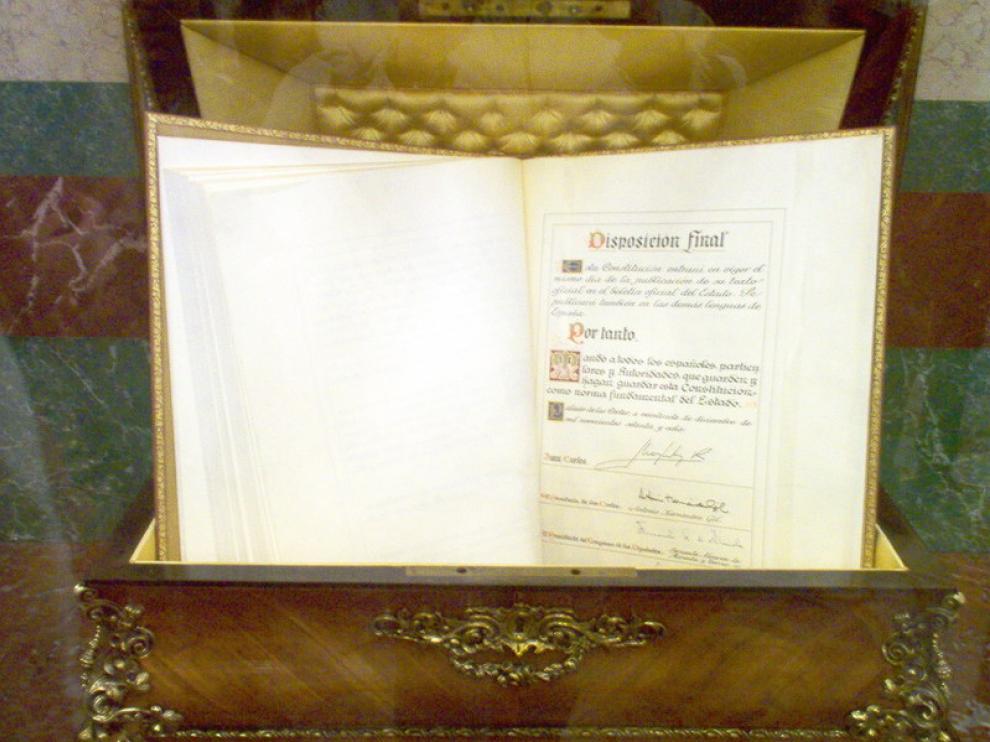 Disposicion final
Esta Constitución entrará en vigor el
mismo dia de la publicación de su texto
oficial en el boletin oficial del Estado. Se
publicará también en las demás lenguas de
España.
Por tanto,
Mando a todos los españoles, particu
lares y Autoridades, que guarden y
hagan guardar esta Constitucion
como norma fundamental del Estado.
Palacio de las Cortes, a veintisiete de diciembre de
mil novecientos setenta y ocho.
Juan Carlos
El Presidente de las Cortes,
Antonio Hernandez Gil
El Presidente del Congreso de los Diputados,
Fernando Alvarez de
Miranda y Torres